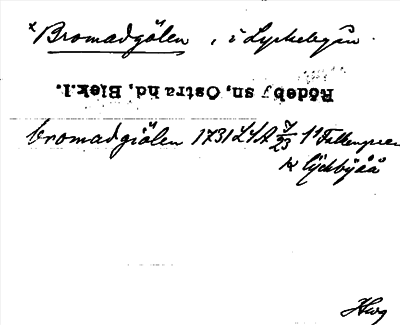 ×Bromadgölen, i Lyckebyån.
Rödeby sn, Östra hd, Blek.l.
bromadgiölen 1731 LSA 3/23 1:1 Falkengreen
k lÿckbÿåå
Hwg